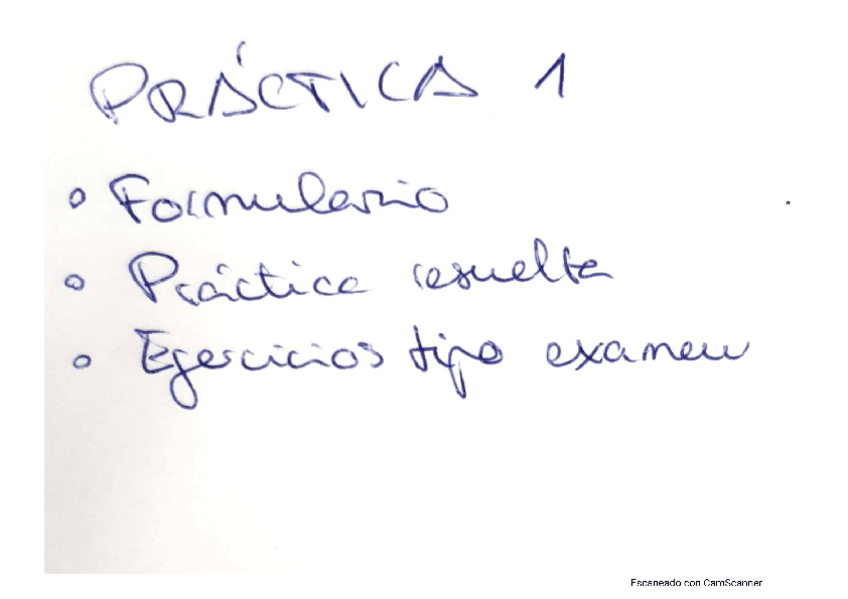 PRÁCTICA 1
• Formulario
• Práctica resuelta
• Ejercicios tipo examen
Escaneado con CamScanner